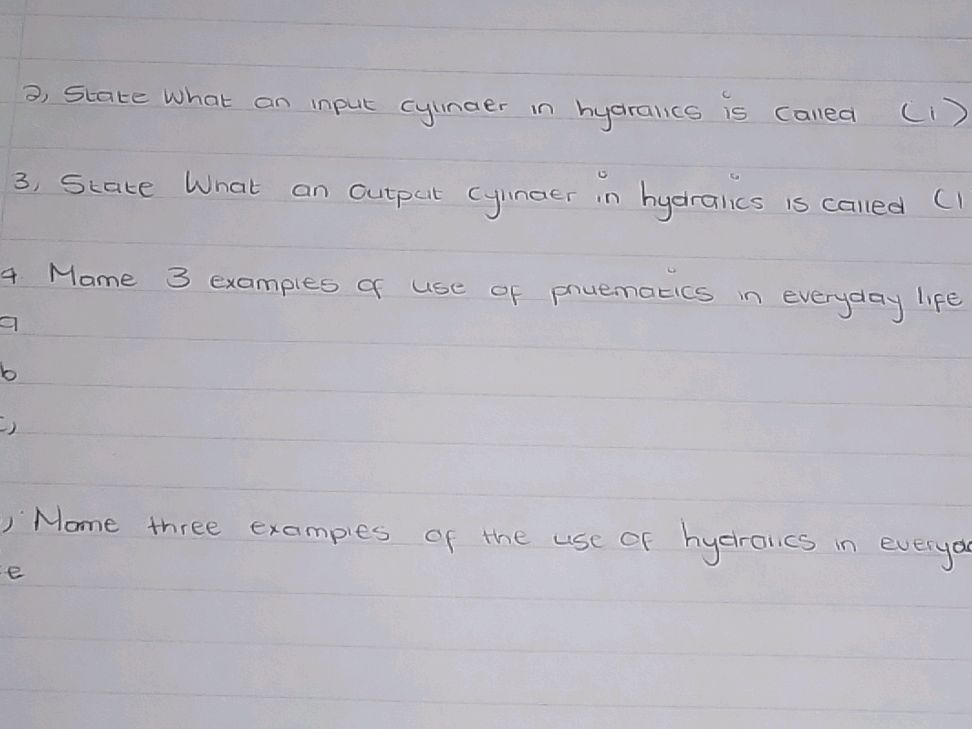 2, State what an input cylinder in hydralics is called (1)
3, State What an output cylinder in hydralics is called (1
4 Name 3 examples of use of pnuematics in everyday life
a
b
c)
, Name three examples of the use of hydralics in everyda
e